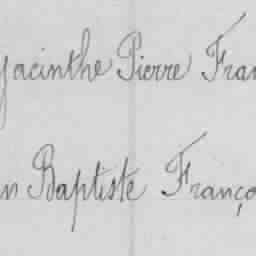 yacinthe Pierre Fran
n Baptiste Franço